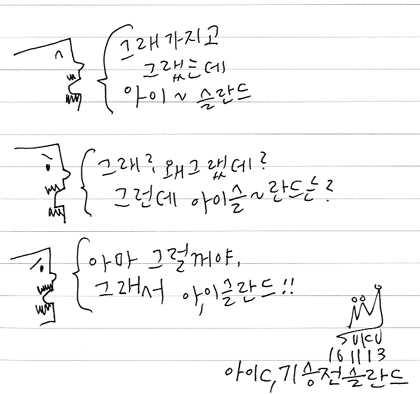 그래가지고
그랬는데
아이~ 슬란드
그래? 왜그랬데?
그런데 아이슬~란드는?
아마 그럴꺼야,
그래서 아,이슬란드!!
SUKU
161113
아이C,기승전슬란드